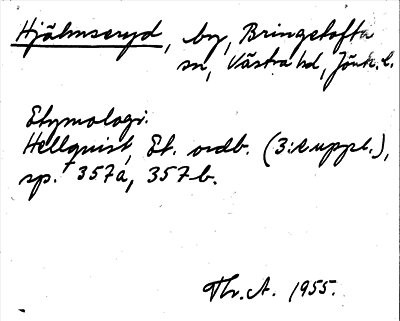 Hjälmseryd, by, Bringetofta
sn, Västra hd, Jönk. l.
Etymologi.
Hellquist, Et. ordb. (3:e uppl.),
sp. 357a, 357b.
Thr. A. 1955.